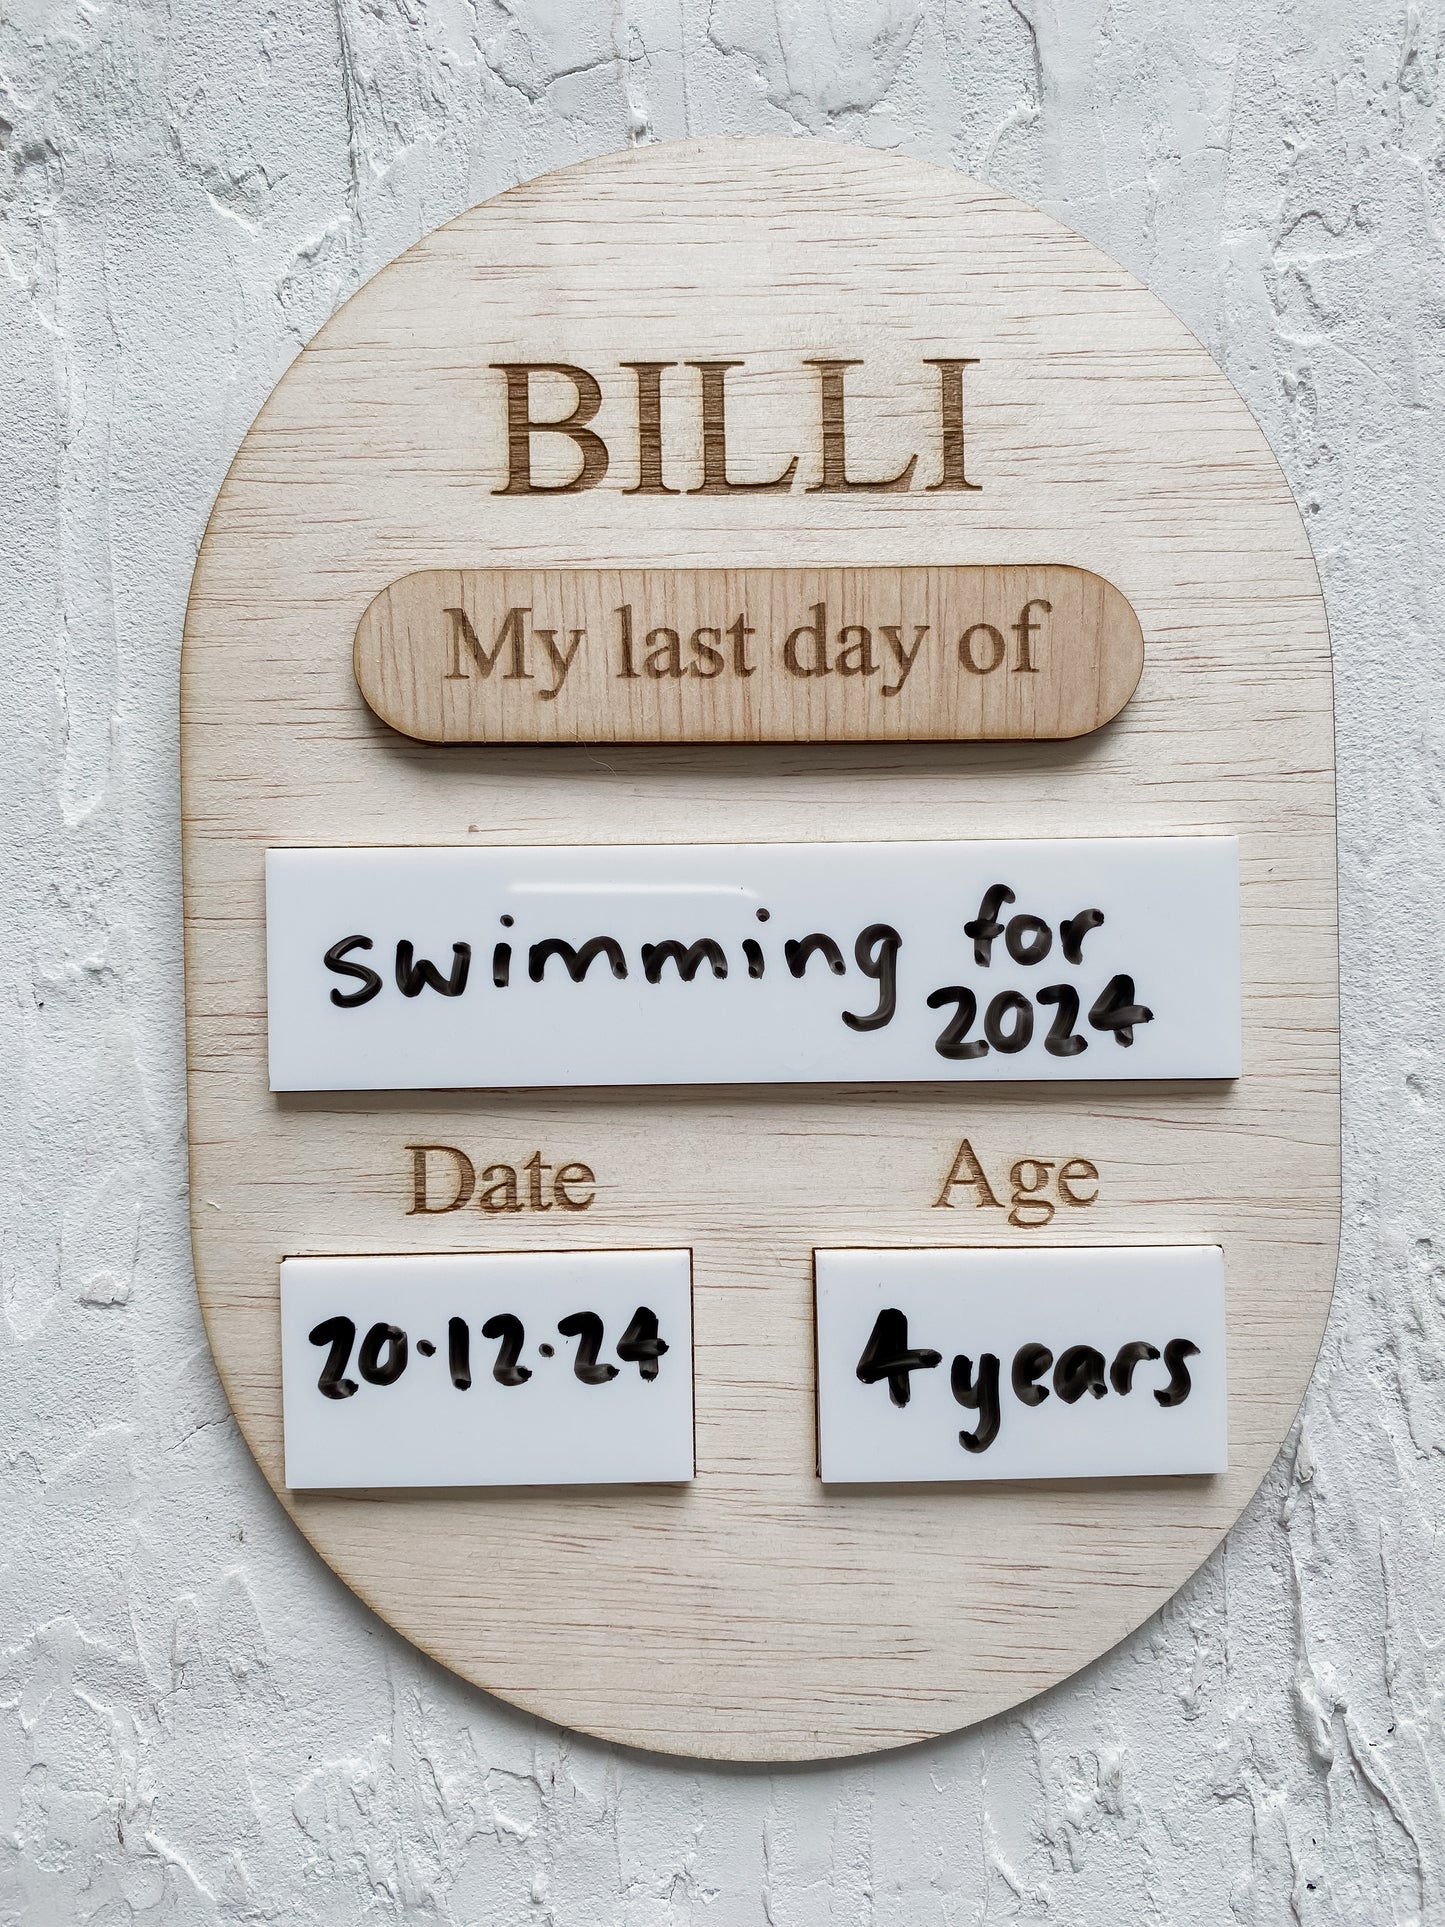 BILLI
My last day of
swimming for
2024
Date
Age
20.12.24
4 years